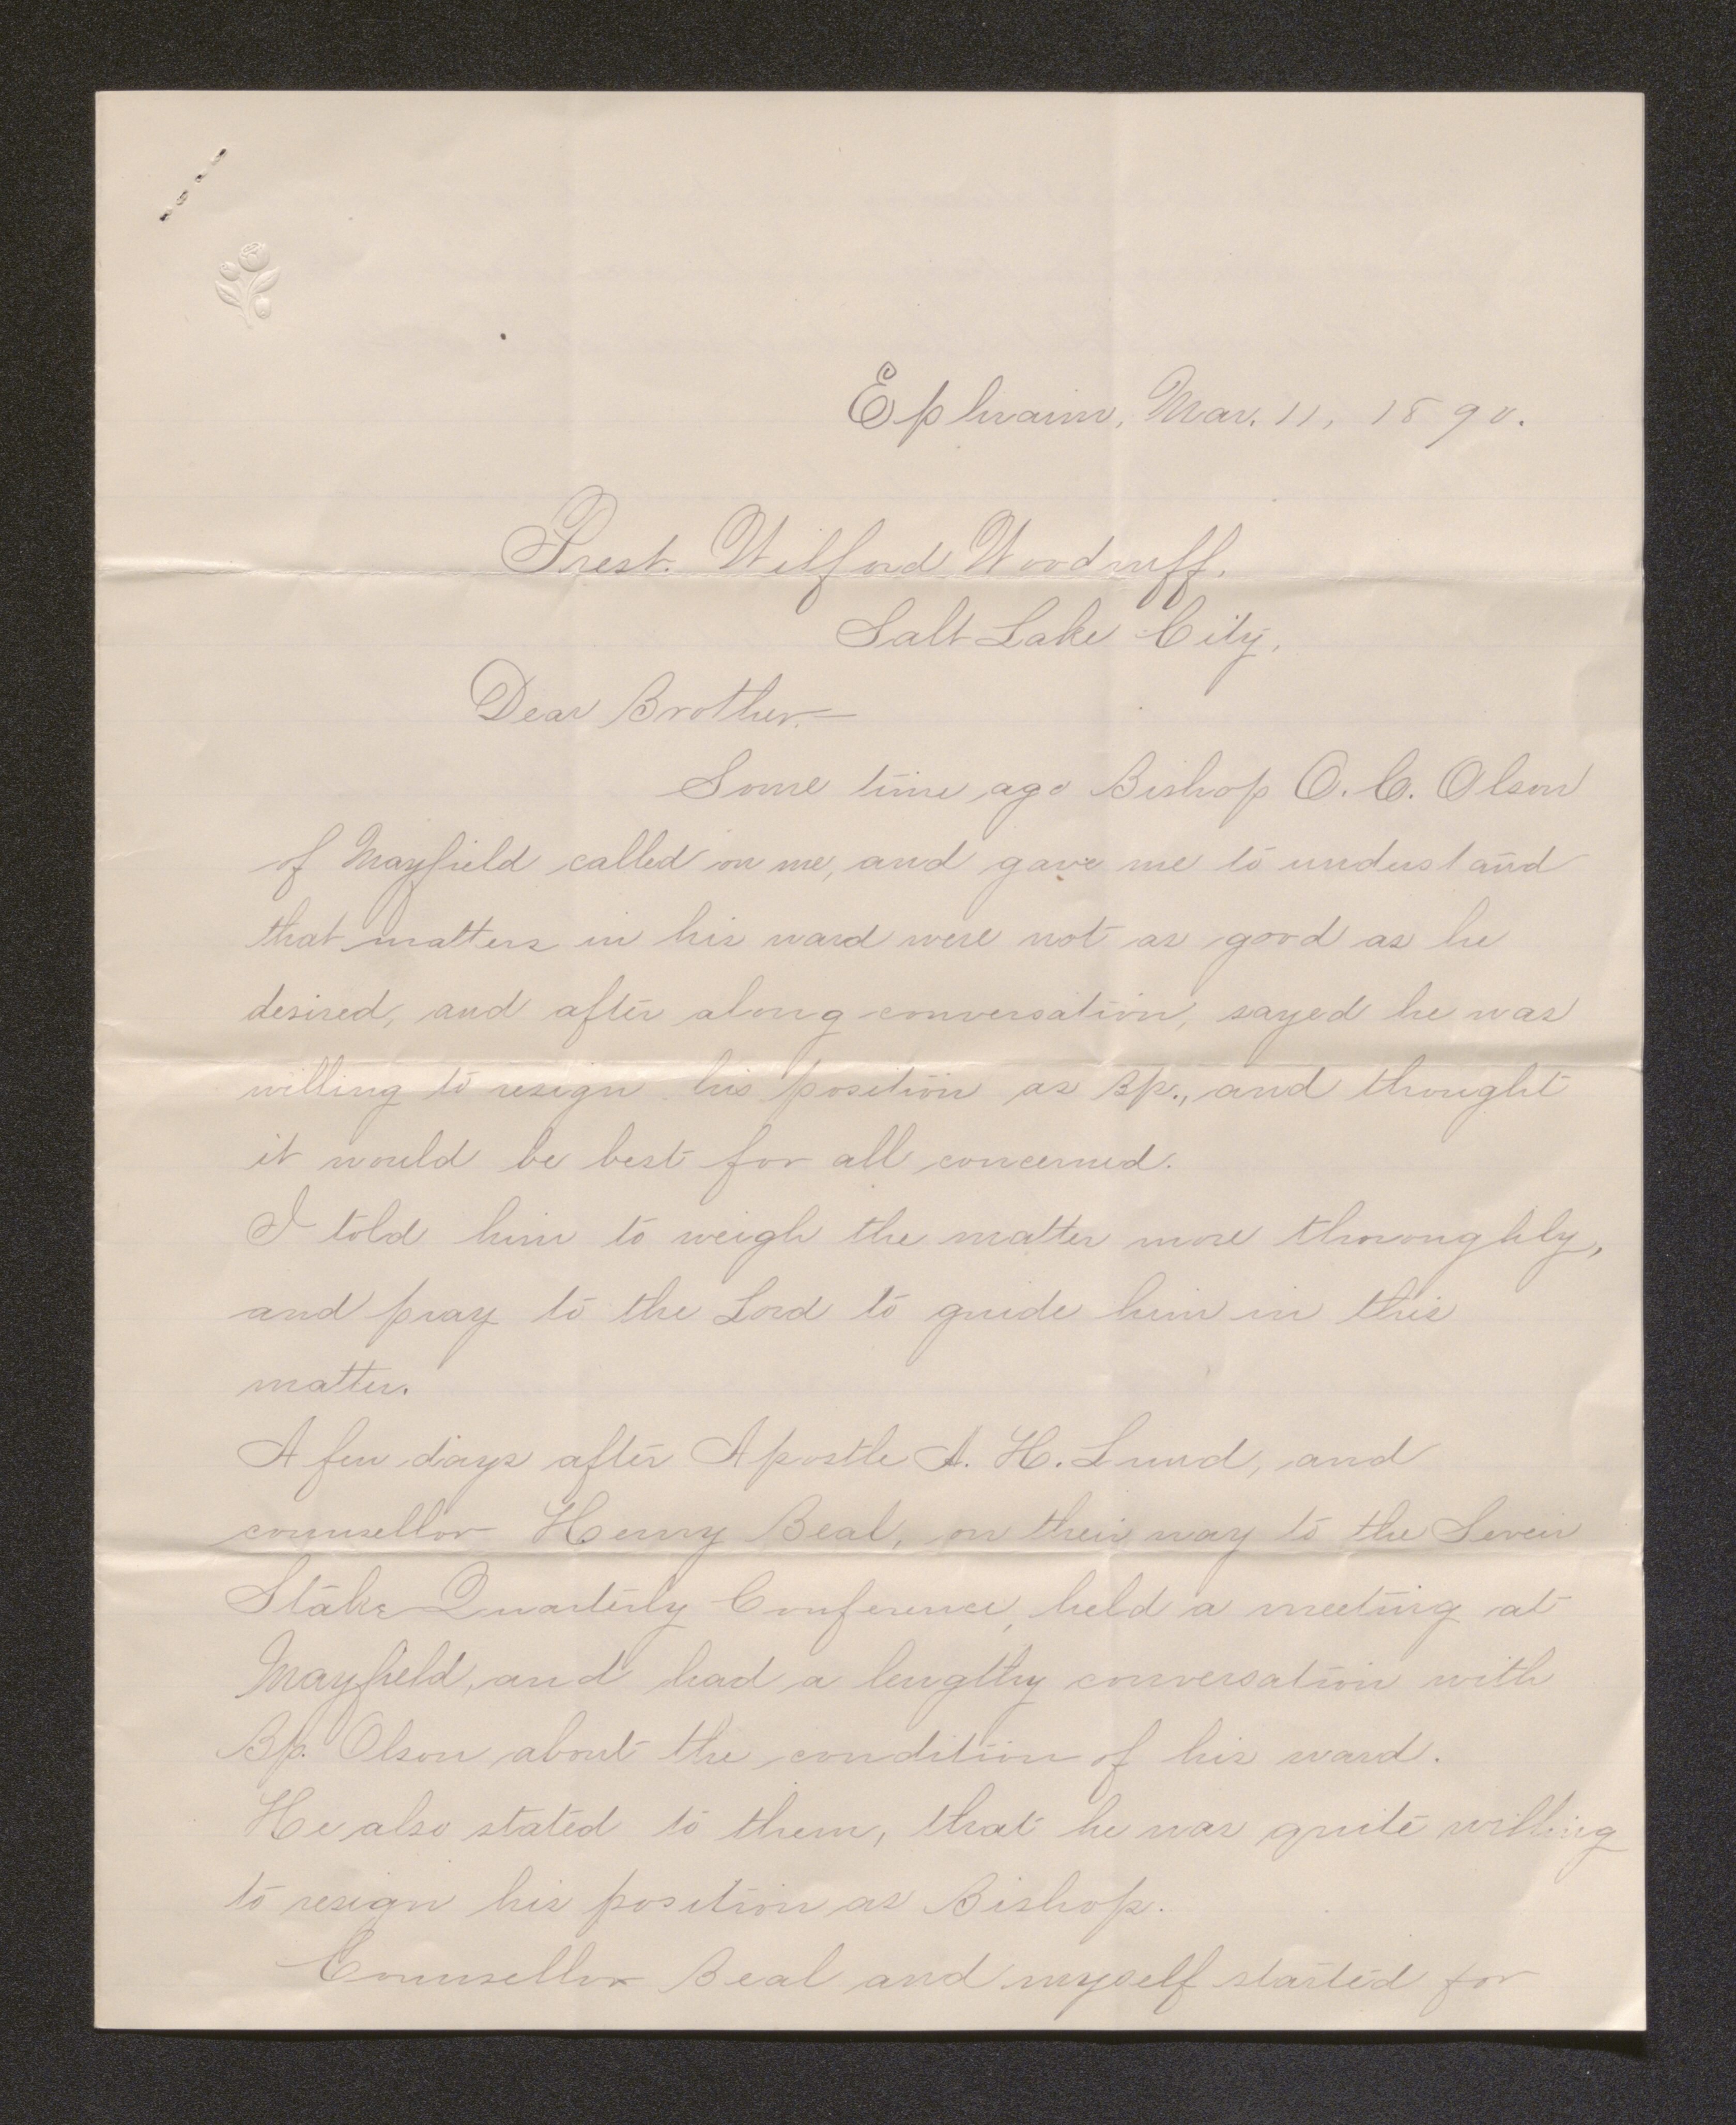 Ephraim, Mar. 11, 1890.
Prest. Wilford Woodruff.
Salt Lake City,
Dear Brother.—
Some time ago Bishop O. C. Olson
of Mayfield called on me, and gave me to understand
that matters in his ward were not as good as he
desired, and after along conversation, sayed he was
willing to resign his position as Bp., and thought
it would be best for all concerned.
I told him to weigh the matter more thoroughly,
and pray to the Lord to guide him in this
matter.
A few days after Apostle A. H. Lund, and
counsellor Henry Beal, on their way to the Sevier
Stake Quarterly Conference, held a meeting at
Mayfield, and had a lengthy conversation with
Bp. Olson about the condition of his ward.
He also stated to them, that he was quite willing
to resign his position as Bishop.
Counsellor Beal and myself started for